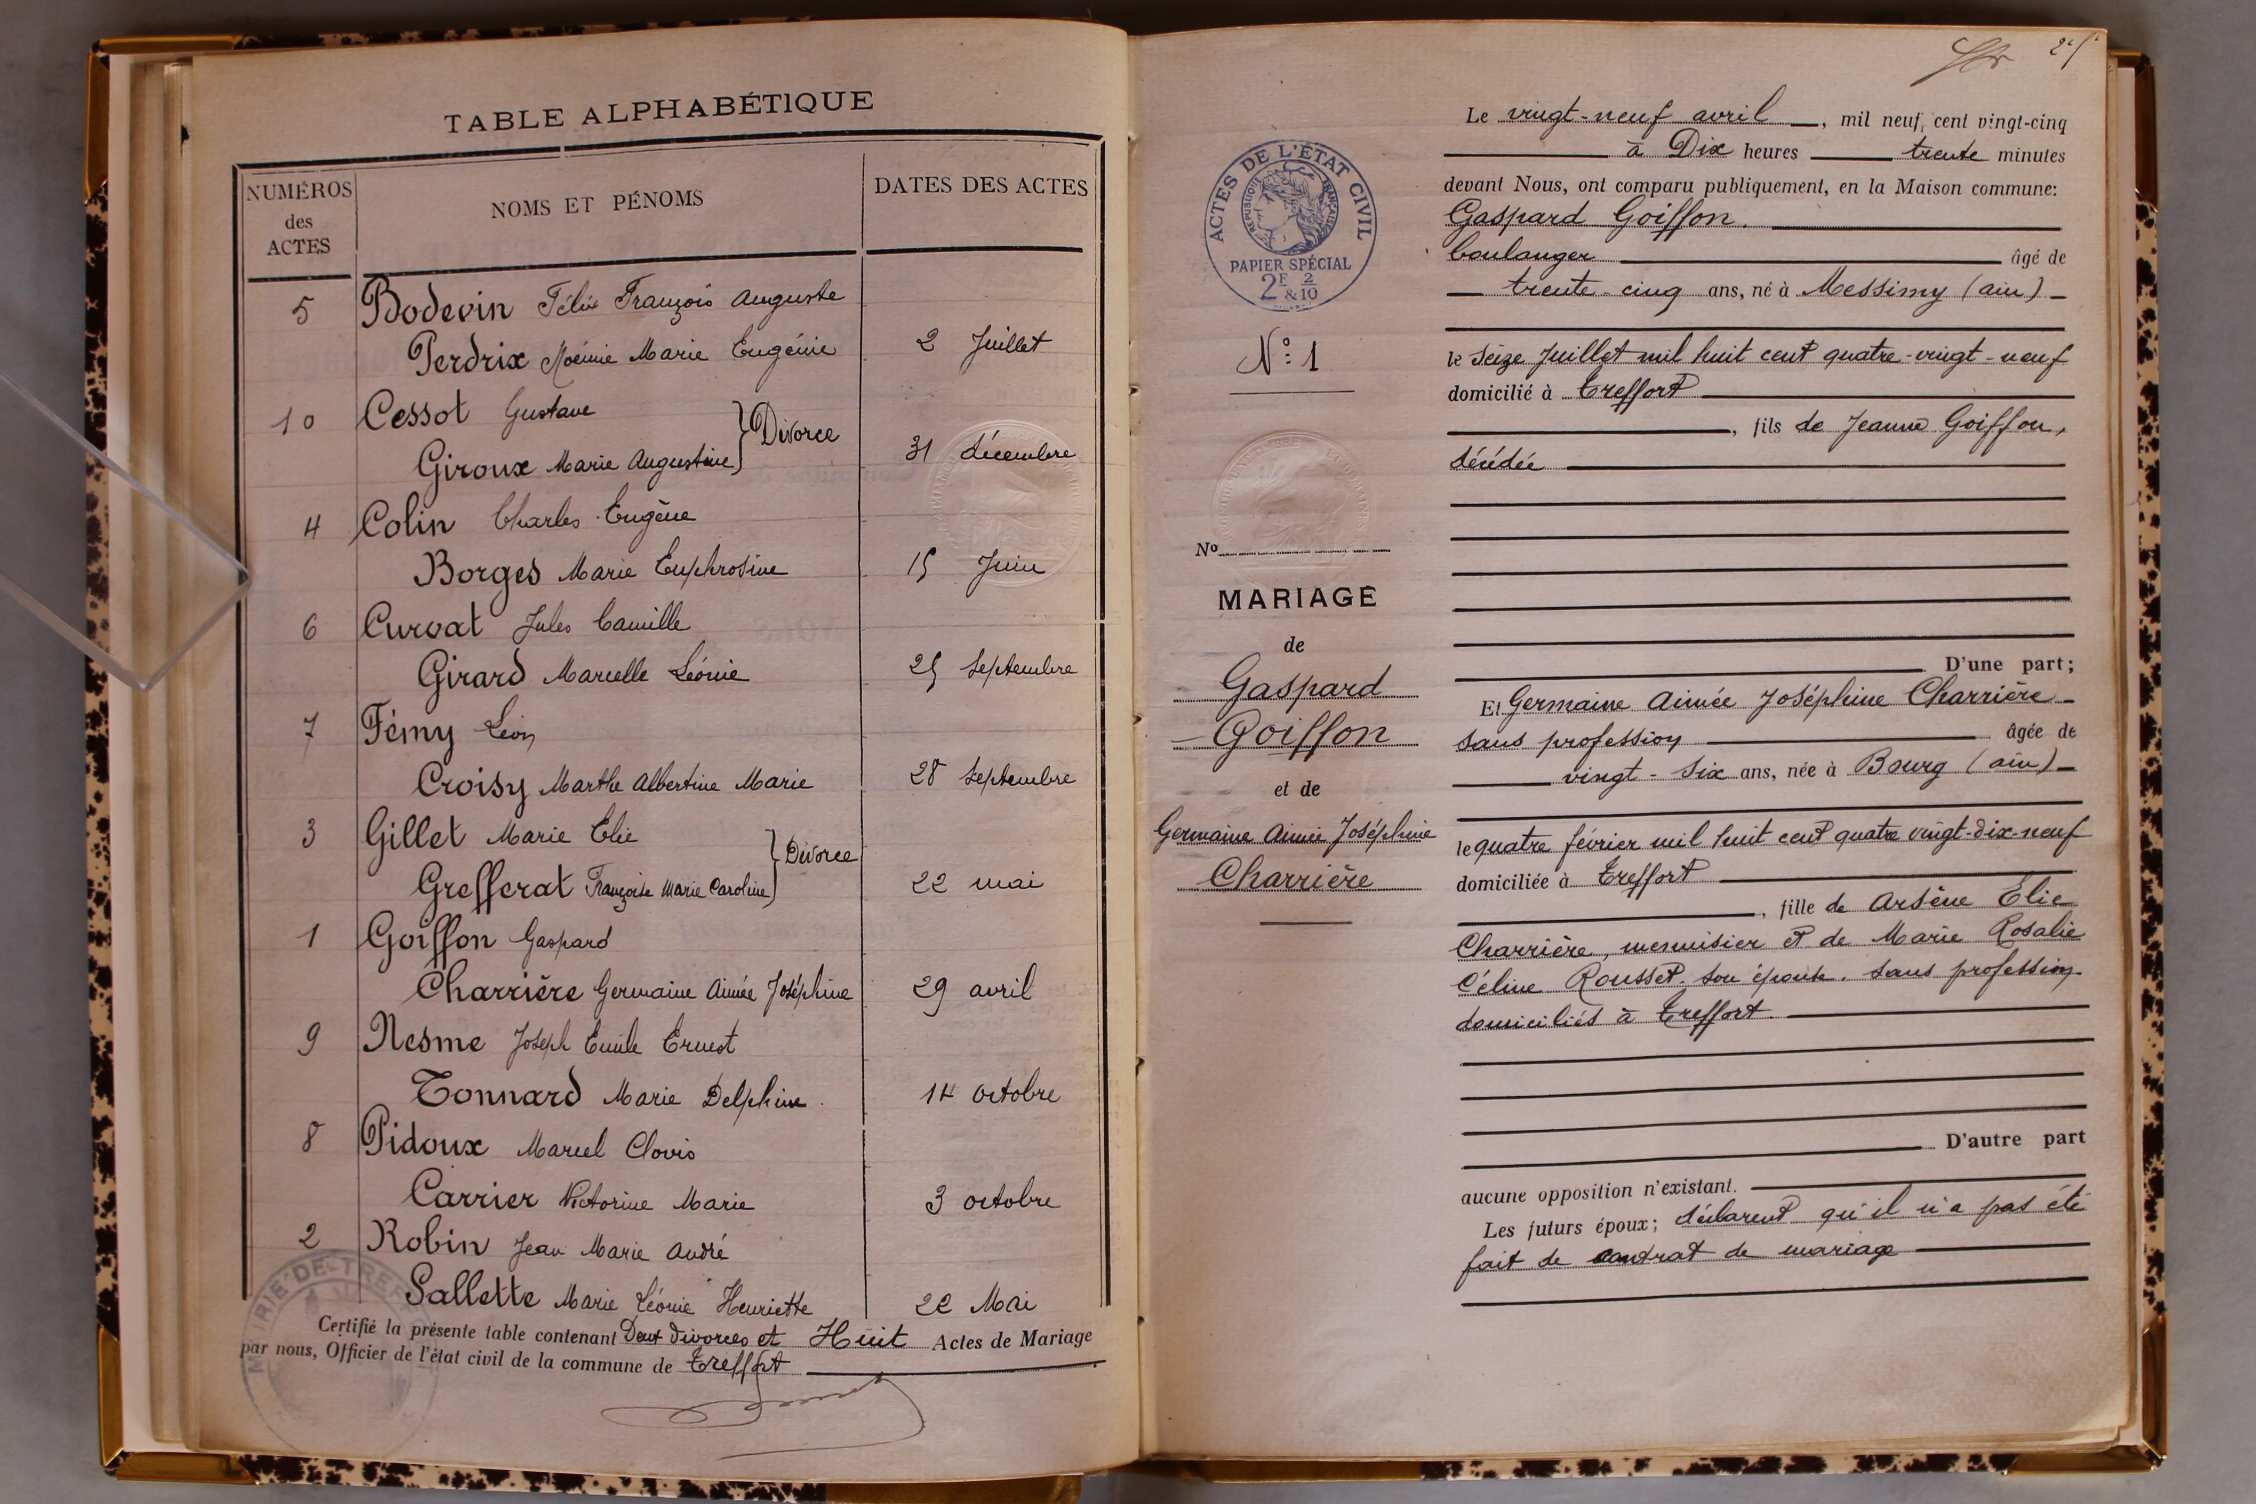 TABLE ALPHABÉTIQUE
NUMÉROS des ACTES
NOMS ET PÉNOMS
DATES DES ACTES
5 Bodevin Félix François Auguste
Perdrix Noémie Marie Eugénie 2 Juillet
10 Cessot Gustave
Giroux Marie Augustine } Divorce 31 décembre
4 Colin Charles Eugène
Borges Marie Euphrosine 15 Juin
6 Curvat Jules Camille
Girard Marcelle Léonie 25 Septembre
7 Fémy Léon
Croisy Marthe Albertine Marie 28 Septembre
3 Gillet Marie Elie
Grefferat Françoise Marie Caroline } Divorce 22 mai
1 Goiffon Gaspard
Charrière Germaine Aimée Joséphine 29 avril
9 Nesme Joseph Emile Ernest
Tonnard Marie Delphine 14 octobre
8 Pidoux Marcel Clovis
Carrier Victorine Marie 3 octobre
2 Robin Jean Marie André
Sallette Marie Léonie Henriette 22 Mai
Certifié la présente table contenant Deux divorces et Huit Actes de Mariage
par nous, Officier de l'état civil de la commune de Treffort
MAIRIE DE TREFFORT
ACTES DE L'ÉTAT CIVIL
RÉPUBLIQUE FRANÇAISE
PAPIER SPÉCIAL
2F & 2/10
No: 1
No
MARIAGE
de
Gaspard
Goiffon
et de
Germaine Aimée Joséphine
Charrière
Le vingt-neuf avril, mil neuf cent vingt-cinq
à Dix heures trente minutes
devant Nous, ont comparu publiquement, en la Maison commune:
Gaspard Goiffon.
boulanger âgé de
trente-cinq ans, né à Messimy (ain)
le Seize Juillet mil huit cent quatre-vingt-neuf
domicilié à Treffort
, fils de Jeanne Goiffon,
décédée
D'une part;
Et Germaine Aimée Joséphine Charrière
sans profession âgée de
vingt-six ans, née à Bourg (ain)
le quatre février mil huit cent quatre vingt-dix-neuf
domiciliée à Treffort
, fille de Arsène Élie
Charrière, menuisier et de Marie Rosalie
Céline Rousset. son épouse. sans profession
domiciliés à Treffort.
D'autre part
aucune opposition n'existant.
Les futurs époux; déclarent qu'il n'a pas été
fait de contrat de mariage